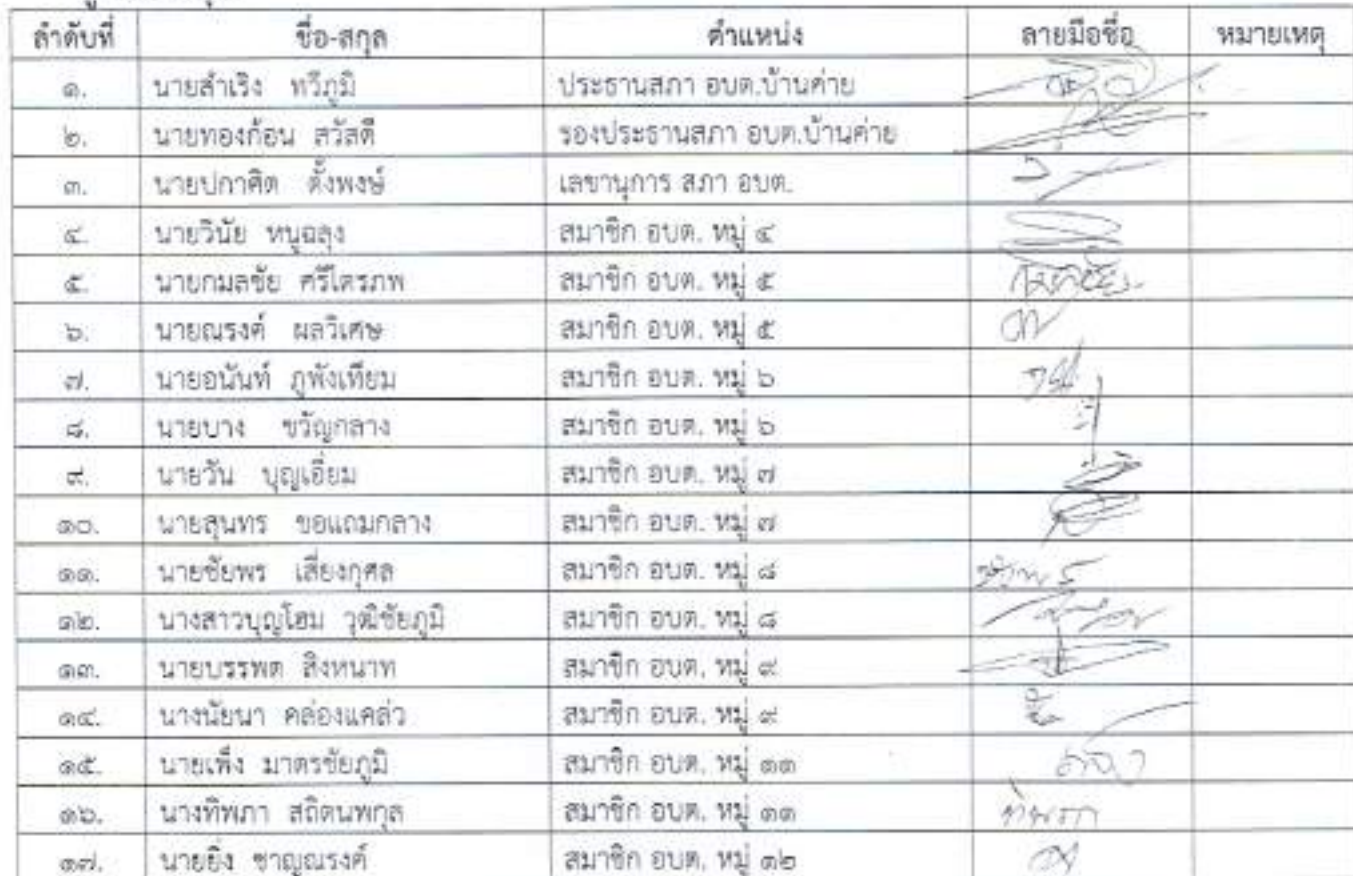 ลำดับที่ ชื่อ-สกุล ตำแหน่ง ลายมือชื่อ หมายเหตุ
๑. นายสำเริง ทวีภูมิ ประธานสภา อบต.บ้านค่าย
๒. นายทองก้อน สวัสดี รองประธานสภา อบต.บ้านค่าย
๓. นายปกาศิต ตั้งพงษ์ เลขานุการ สภา อบต.
๔. นายวินัย หนูฉลุง สมาชิก อบต. หมู่ ๔
๕. นายกมลชัย ศรีไตรภพ สมาชิก อบต. หมู่ ๕
๖. นายณรงค์ ผลวิเศษ สมาชิก อบต. หมู่ ๕
๗. นายอนันท์ ภูพังเทียม สมาชิก อบต. หมู่ ๖
๘. นายบาง ขวัญกลาง สมาชิก อบต. หมู่ ๖
๙. นายวัน บุญเอี่ยม สมาชิก อบต. หมู่ ๗
๑๐. นายสุนทร ขอแถมกลาง สมาชิก อบต. หมู่ ๗
๑๑. นายชัยพร เสี่ยงกุศล สมาชิก อบต. หมู่ ๘
๑๒. นางสาวบุญโฮม วุฒิชัยภูมิ สมาชิก อบต. หมู่ ๘
๑๓. นายบรรพต สิงหนาท สมาชิก อบต. หมู่ ๙
๑๔. นางนัยนา คล่องแคล่ว สมาชิก อบต. หมู่ ๙
๑๕. นายเพ็ง มาตรชัยภูมิ สมาชิก อบต. หมู่ ๑๑
๑๖. นางทิพภา สถิตนพกุล สมาชิก อบต. หมู่ ๑๑
๑๗. นายยิ่ง ชาญณรงค์ สมาชิก อบต. หมู่ ๑๒